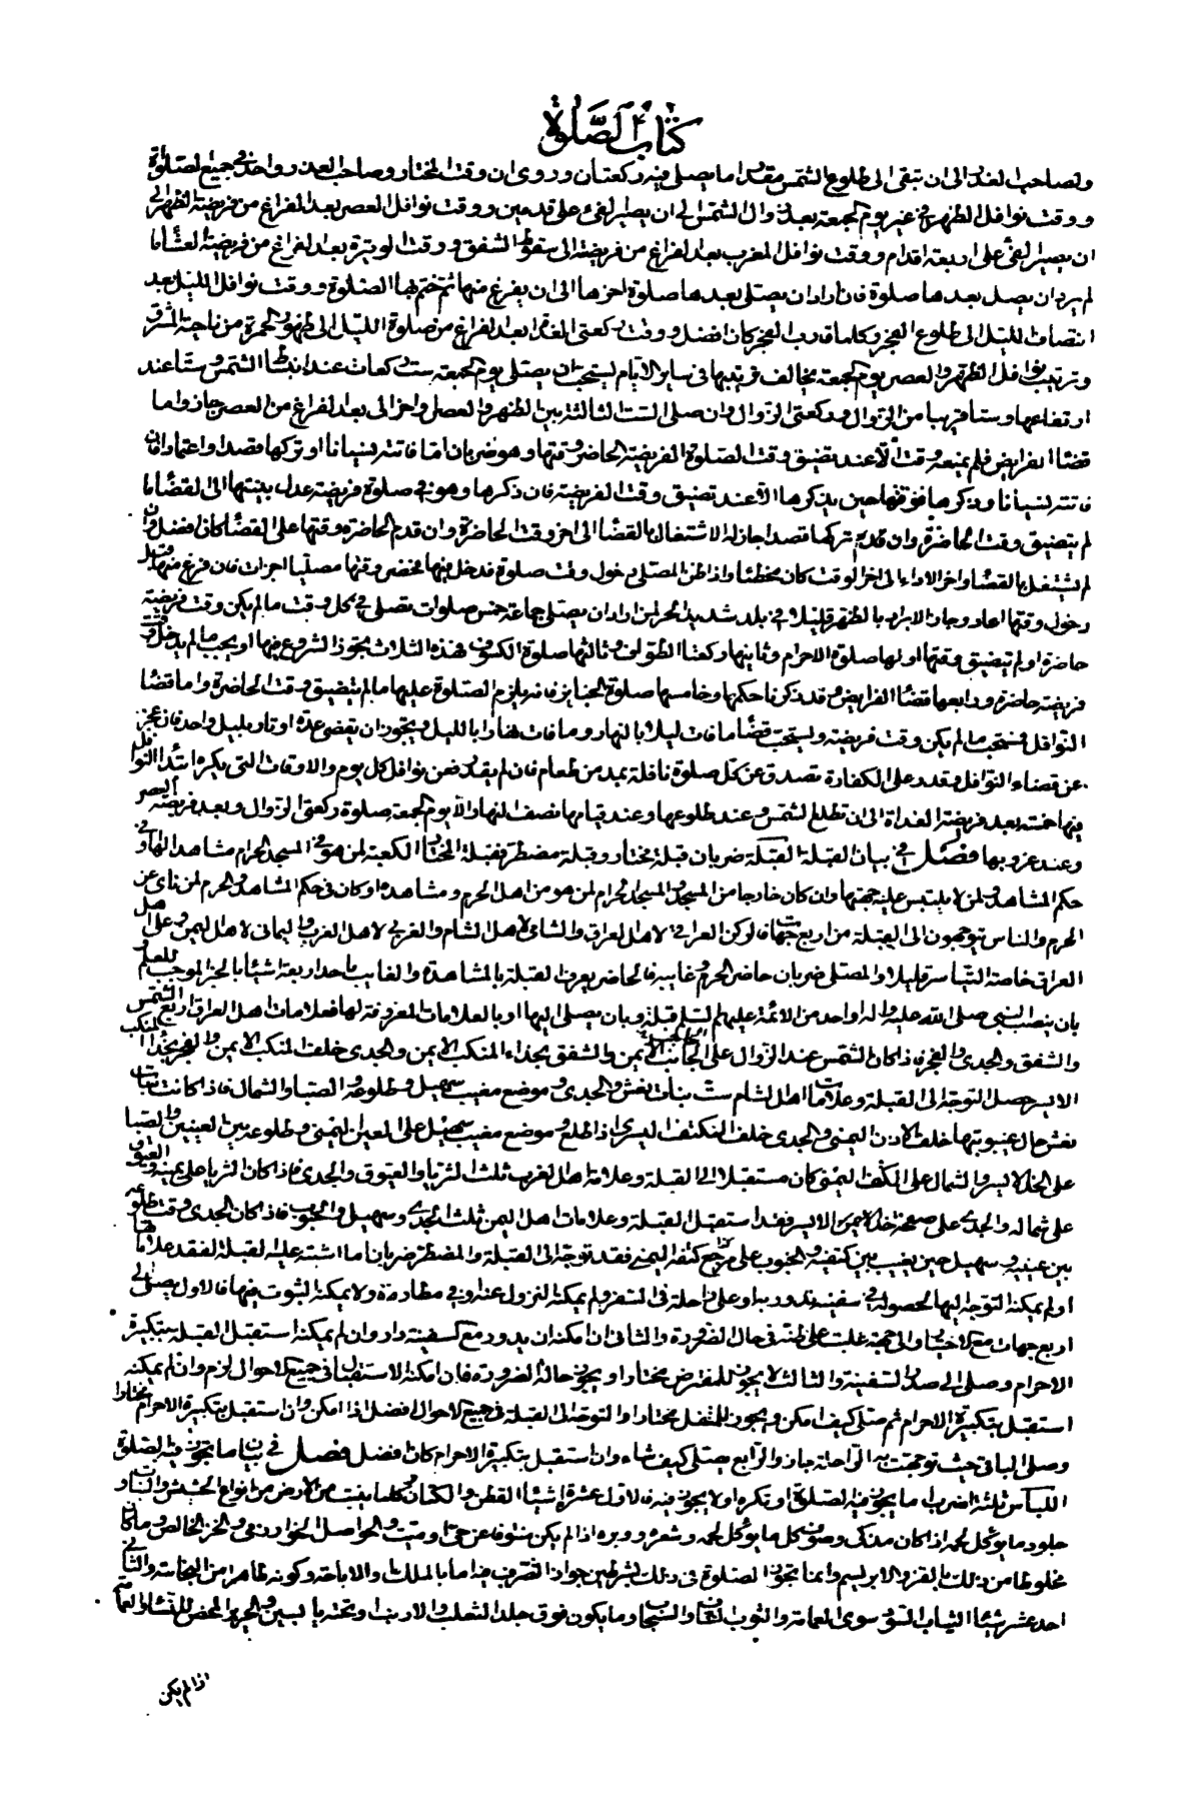 كتاب الصلوة
ولصاحب العذر الى ان تبقى الى طلوع الشمس مقدار ما يصلى فيه ركعتان وروى ان وقت المختار وصاحب العذر واحد فى جميع الصلوة
ووقت نوافل الظهر فى غير يوم الجمعة بعد زوال الشمس الى ان يصير الفئ على قدمين ووقت نوافل العصر بعد الفراغ من فريضة الظهر الى
ان يصير الفئ على اربعة اقدام ووقت نوافل المغرب بعد الفراغ من فريضته الى سقوط الشفق ووقت الوتيرة بعد الفراغ من فريضة العشاء اما
لم يرد ان يصل بعدها صلوة فان اراد ان يصلى بعدها صلوة اخرها الى ان يفرغ منها ثم ختم بها الصلوة ووقت نوافل الليل بعد
انتصاف الليل الى طلوع الفجر وكلما قارب الفجر كان افضل ووقت ركعتى الغداة بعد الفراغ من صلوة الليل الى ظهور الحمرة من ناحية المشرق
وترتيب نوافل الظهر والعصر يوم الجمعة يخالف ترتيبها فى ساير الايام يستحب ان يصلى يوم الجمعة ست ركعات عند انبساط الشمس وستا عند
ارتفاعها وستا قريبا من الزوال وركعتى الزوال وان صلى الست الثالثة بين الظهر والعصر واخر الى بعد الفراغ من العصر جاز واما
قضاء الفرايض فلم يمنعه وقت الا عند تضيق وقت الصلوة الفريضة الحاضر وقتها وهو ضربان اما فاتته نسيانا او تركها قصدا واعتمادا فان
فاتته نسيانا وذكرها فوقتها حين يذكرها الا عند تضيق وقت الفريضة فان ذكرها وهو فى صلوة فريضة عدل بنيته الى القضاء ما
لم يتضيق وقت الحاضرة وان تركها قصدا جاز له الاشتغال بالقضاء الى اخر وقت الحاضرة وان قدم الحاضرة وقتها على القضاء كان افضل وان
لم يشتغل بالقضاء واخر الاداء الى اخر الوقت كان مخطئا واذا ظن المصلى دخول وقت صلوة فدخل فيها فحضر وقتها مصليا اجزأت فان فرغ منها قبل
دخول وقتها اعاد وجاز الابراد بالظهر قليلا فى بلد شديد الحر لمن اراد ان يصلى جماعة خمس صلوات تصلى فى كل وقت ما لم يكن وقت فريضة
حاضرة او لم يتضيق وقتها اولها صلوة الاحرام وثانيها ركعتا الطواف وثالثها صلوة الكسوف فهذه الثلاث يجوز الشروع فيها او يجب ما لم يدخل وقت
فريضة حاضرة ورابعها قضاء الفرايض وقد ذكرنا حكمها وخامسها صلوة الجنايز فانه يلزم الصلوة عليها ما لم يتضيق وقت الحاضرة واما قضاء
النوافل فيستحب ما لم يكن وقت فريضة ويستحب قضاء ما فات ليلا بالنهار وما فات نهارا بالليل ويجوز ان يقضى عدة اوتار بليل واحد فان عجز
عن قضاء النوافل وقدر على الكفارة تصدق عن كل صلوة نافلة بمد من طعام فان لم يقدر فعن نوافل كل يوم والاوقات التى يكره ابتداء النوافل
فيها خمسة بعد فريضة الغداة الى ان تطلع الشمس وعند طلوعها وعند قيامها نصف النهار الا يوم الجمعة صلوة ركعتى الزوال وبعد فريضة العصر
وعند غروبها فصل فى بيان القبلة القبلة ضربان قبلة مختار وقبلة مضطر فقبلة المختار الكعبة لمن هو فى المسجد الحرام مشاهدا لها او فى
حكم المشاهد ولمن لا يلتبس عليه جهتها وان كان خارجا من المسجد والمسجد الحرام لمن هو من اهل الحرم ومشاهده او كان فى حكم المشاهد والحرم لمن نأى عن
الحرم والناس يتوجهون الى القبلة من اربع جهات فالركن العراقى لاهل العراق والشامى لاهل الشام والغربى لاهل الغرب واليمانى لاهل اليمن وعلى اهل
العراق خاصة التياسر قليلا والمصلى ضربان حاضر الحرم وغايبه فالحاضر يعرف القبلة بالمشاهدة والغايب باحد اربعة اشياء بالخبر الموجب للعلم
بان ينصب النبى صلى الله عليه واله او واحد من الائمة عليهم السلام قبلة وبان يصلى اليها او بالعلامات المعروفة لها فعلامات اهل العراق اربع الشمس
والشفق والجدى والفجر فاذا كان الشمس عند الزوال على الجانب الايمن والشفق بحذاء المنكب الايمن والجدى خلف المنكب الايمن والفجر بحذاء المنكب
الايسر حصل التوجه الى القبلة وعلامات اهل الشام ست بنات نعش والجدى وموضع مغيب سهيل وطلوعه والصبا والشمال فاذا كانت بنات
نعش حال غيبوبتها خلف الاذن اليمنى والجدى خلف الكتف اليسرى اذا طلع وموضع مغيب سهيل على العين اليمنى وطلوعه بين العينين والصبا
على الخد الايسر والشمال على الكتف اليمنى كان مستقبلا الى القبلة وعلامة اهل الغرب ثلث الثريا والعيوق والجدى فاذا كان الثريا على يمينه والعيوق
على شماله والجدى على صفحة خده الايسر فقد استقبل القبلة وعلامات اهل اليمن ثلث الجدى وسهيل والجنوب فاذا كان الجدى وقت طلوعه
بين عينيه وسهيل حين يغيب بين كتفيه والجنوب على مرجع كتفه اليمنى فقد توجه الى القبلة والمضطر ضربان اما اشتبه عليه القبلة لفقد علاماتها
او لم يمكنه التوجه اليها لحصوله فى سفينة تدور به او على راحلة فى السفر ولم يمكنه النزول عنها او فى مطاردة ولا يمكنه الثبوت فيها فالاول يصلى الى
اربع جهات مع الاختيار والى جهة غلبت على ظنه فى حال الضرورة والثانى ان امكنه ان يدور مع السفينة دار وان لم يمكنه استقبل القبلة بتكبيرة
الاحرام وصلى الى صدر السفينة والثالث لا يجوز للمفترض مختارا ويجوز حالة الضرورة فان امكنه الاستقبال فى جميع الاحوال لزم وان لم يمكنه
استقبل بتكبيرة الاحرام ثم صلى كيف امكن ويجوز للمتنفل مختارا والتوجه الى القبلة فى جميع الاحوال افضل اذا امكن وان استقبل بتكبيرة الاحرام مختارا
وصلى الباقى حيث توجهت به الراحلة جاز والرابع يصلى كيف شاء وان استقبل بتكبيرة الاحرام كان افضل فصل فى بيان ما تجوز فيه الصلوة
اللباس ثلثة اضرب اما يجوز فيه الصلوة او تكره او لا يجوز فيه فالاول عشرة اشياء القطن والكتان وكلما ينبت من الارض من انواع الحشيش والنبات و
جلود ما يؤكل لحمه اذا كان مذكى وصوف كل ما يؤكل لحمه وشعره ووبره اذا لم يكن منتوفا عن حى او ميت والحواصل الخوارزمى والخز الخالص وما كان
مخلوطا من ذلك بالقز والابريسم وانما تجوز الصلوة فى ذلك بشرطين جواز التصرف فيه اما بالملك او الاباحة وكونه طاهرا من النجاسة والثانى
احد عشر شيئا الثياب السود سوى العمامة والثوب الشفاف والسنجاب وما يكون فوق جلد الثعلب والارنب او تحته يابسين والحرير المحض للنساء والعمامة
اذا لم يكن